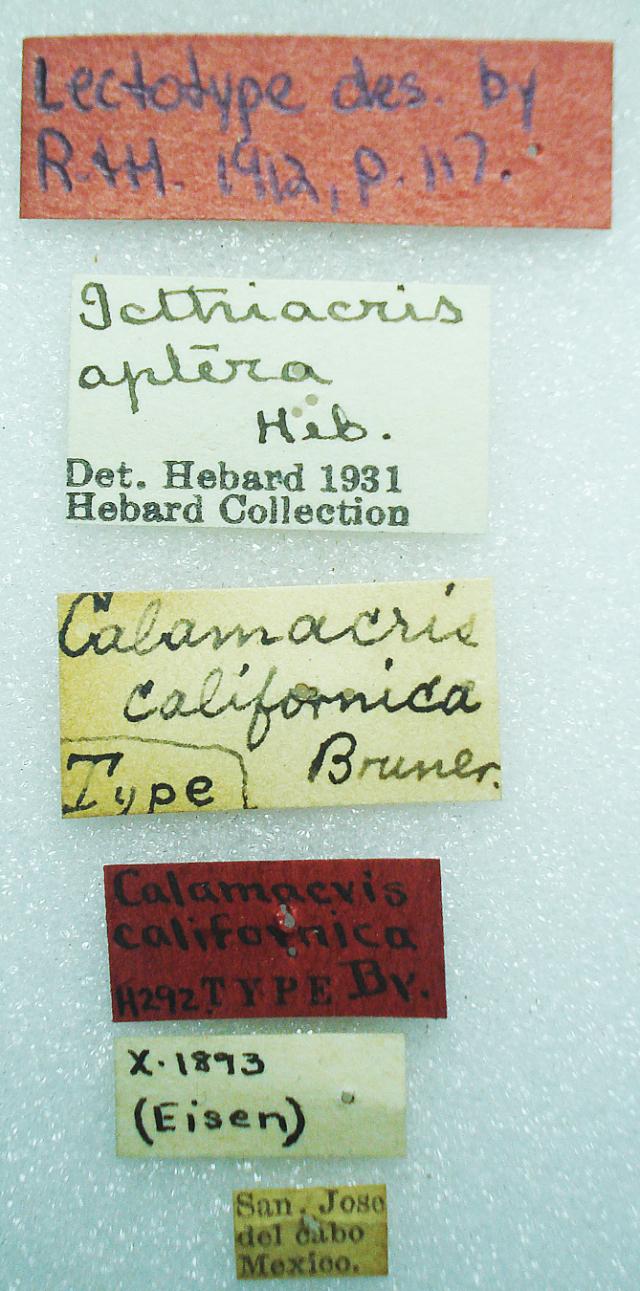 Lectotype des. by
R.&H. 1912, p. 117.
Icthiacris
aptēra
Heb.
Det. Hebard 1931
Hebard Collection
Calamacris
californica
Bruner.
Type
Calamacris
californica
H292. TYPE Br.
X.1893
(Eisen)
San. Jose
del cabo
Mexico.